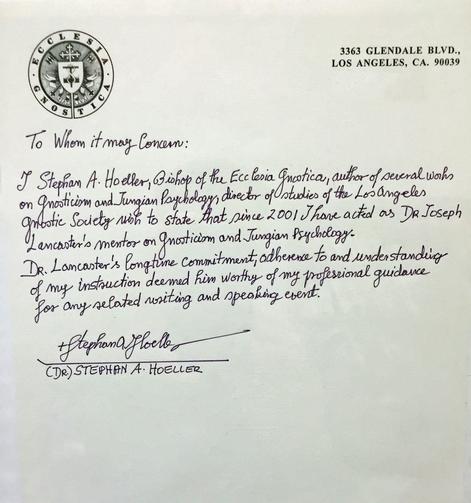 ECCLESIA
GNOSTICA
3363 GLENDALE BLVD.,
LOS ANGELES, CA. 90039
To Whom it may Concern:
I Stephan A. Hoeller, Bishop of the Ecclesia Gnostica, author of several works
on Gnosticism and Jungian Psychology, director of studies of the Los Angeles
Gnostic Society wish to state that since 2001 I have acted as Dr Joseph
Lancaster's mentor on Gnosticism and Jungian Psychology.
Dr. Lancaster's longtime commitment, adherence to and understanding
of my instruction deemed him worthy of my professional guidance
for any related writing and speaking event.
+Stephan A Hoeller
(DR) STEPHAN A. HOELLER